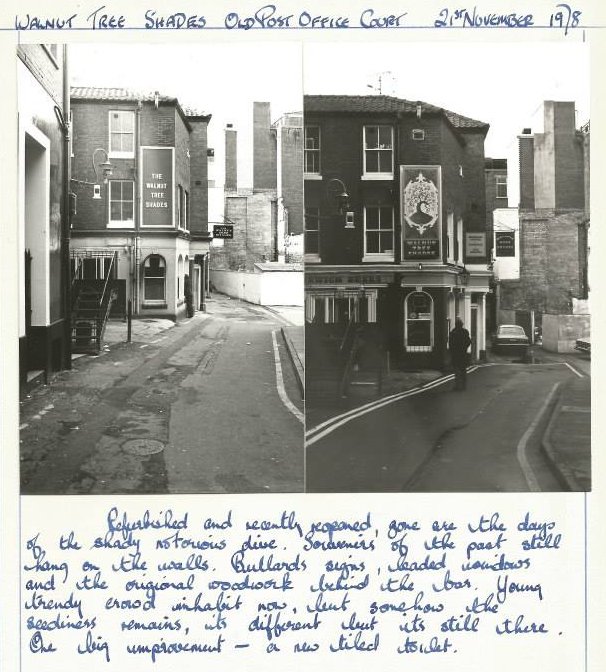 WALNUT TREE SHADES OLD POST OFFICE COURT 21ST NOVEMBER 1978
THE
WALNUT
TREE
SHADES
WALNUT
TREE
SHADES
Refurbished and recently reopened, gone are the days
of the shady notorious dive. Souvenirs of the past still
hang on the walls. Bullards signs, leaded windows
and the origional woodwork behind the bar. Young
trendy crowd inhabit now, but somehow the
seediness remains, its different but its still there.
One big improvement – a new tiled toilet.